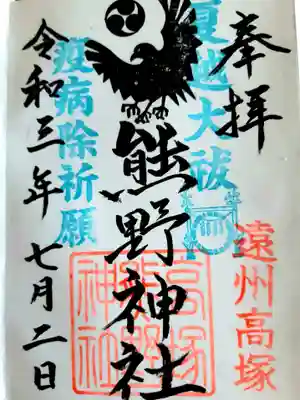 奉拝
遠州高塚
夏越大祓
熊野神社
高塚
熊野
神社
疫病除祈願
令和三年七月二日